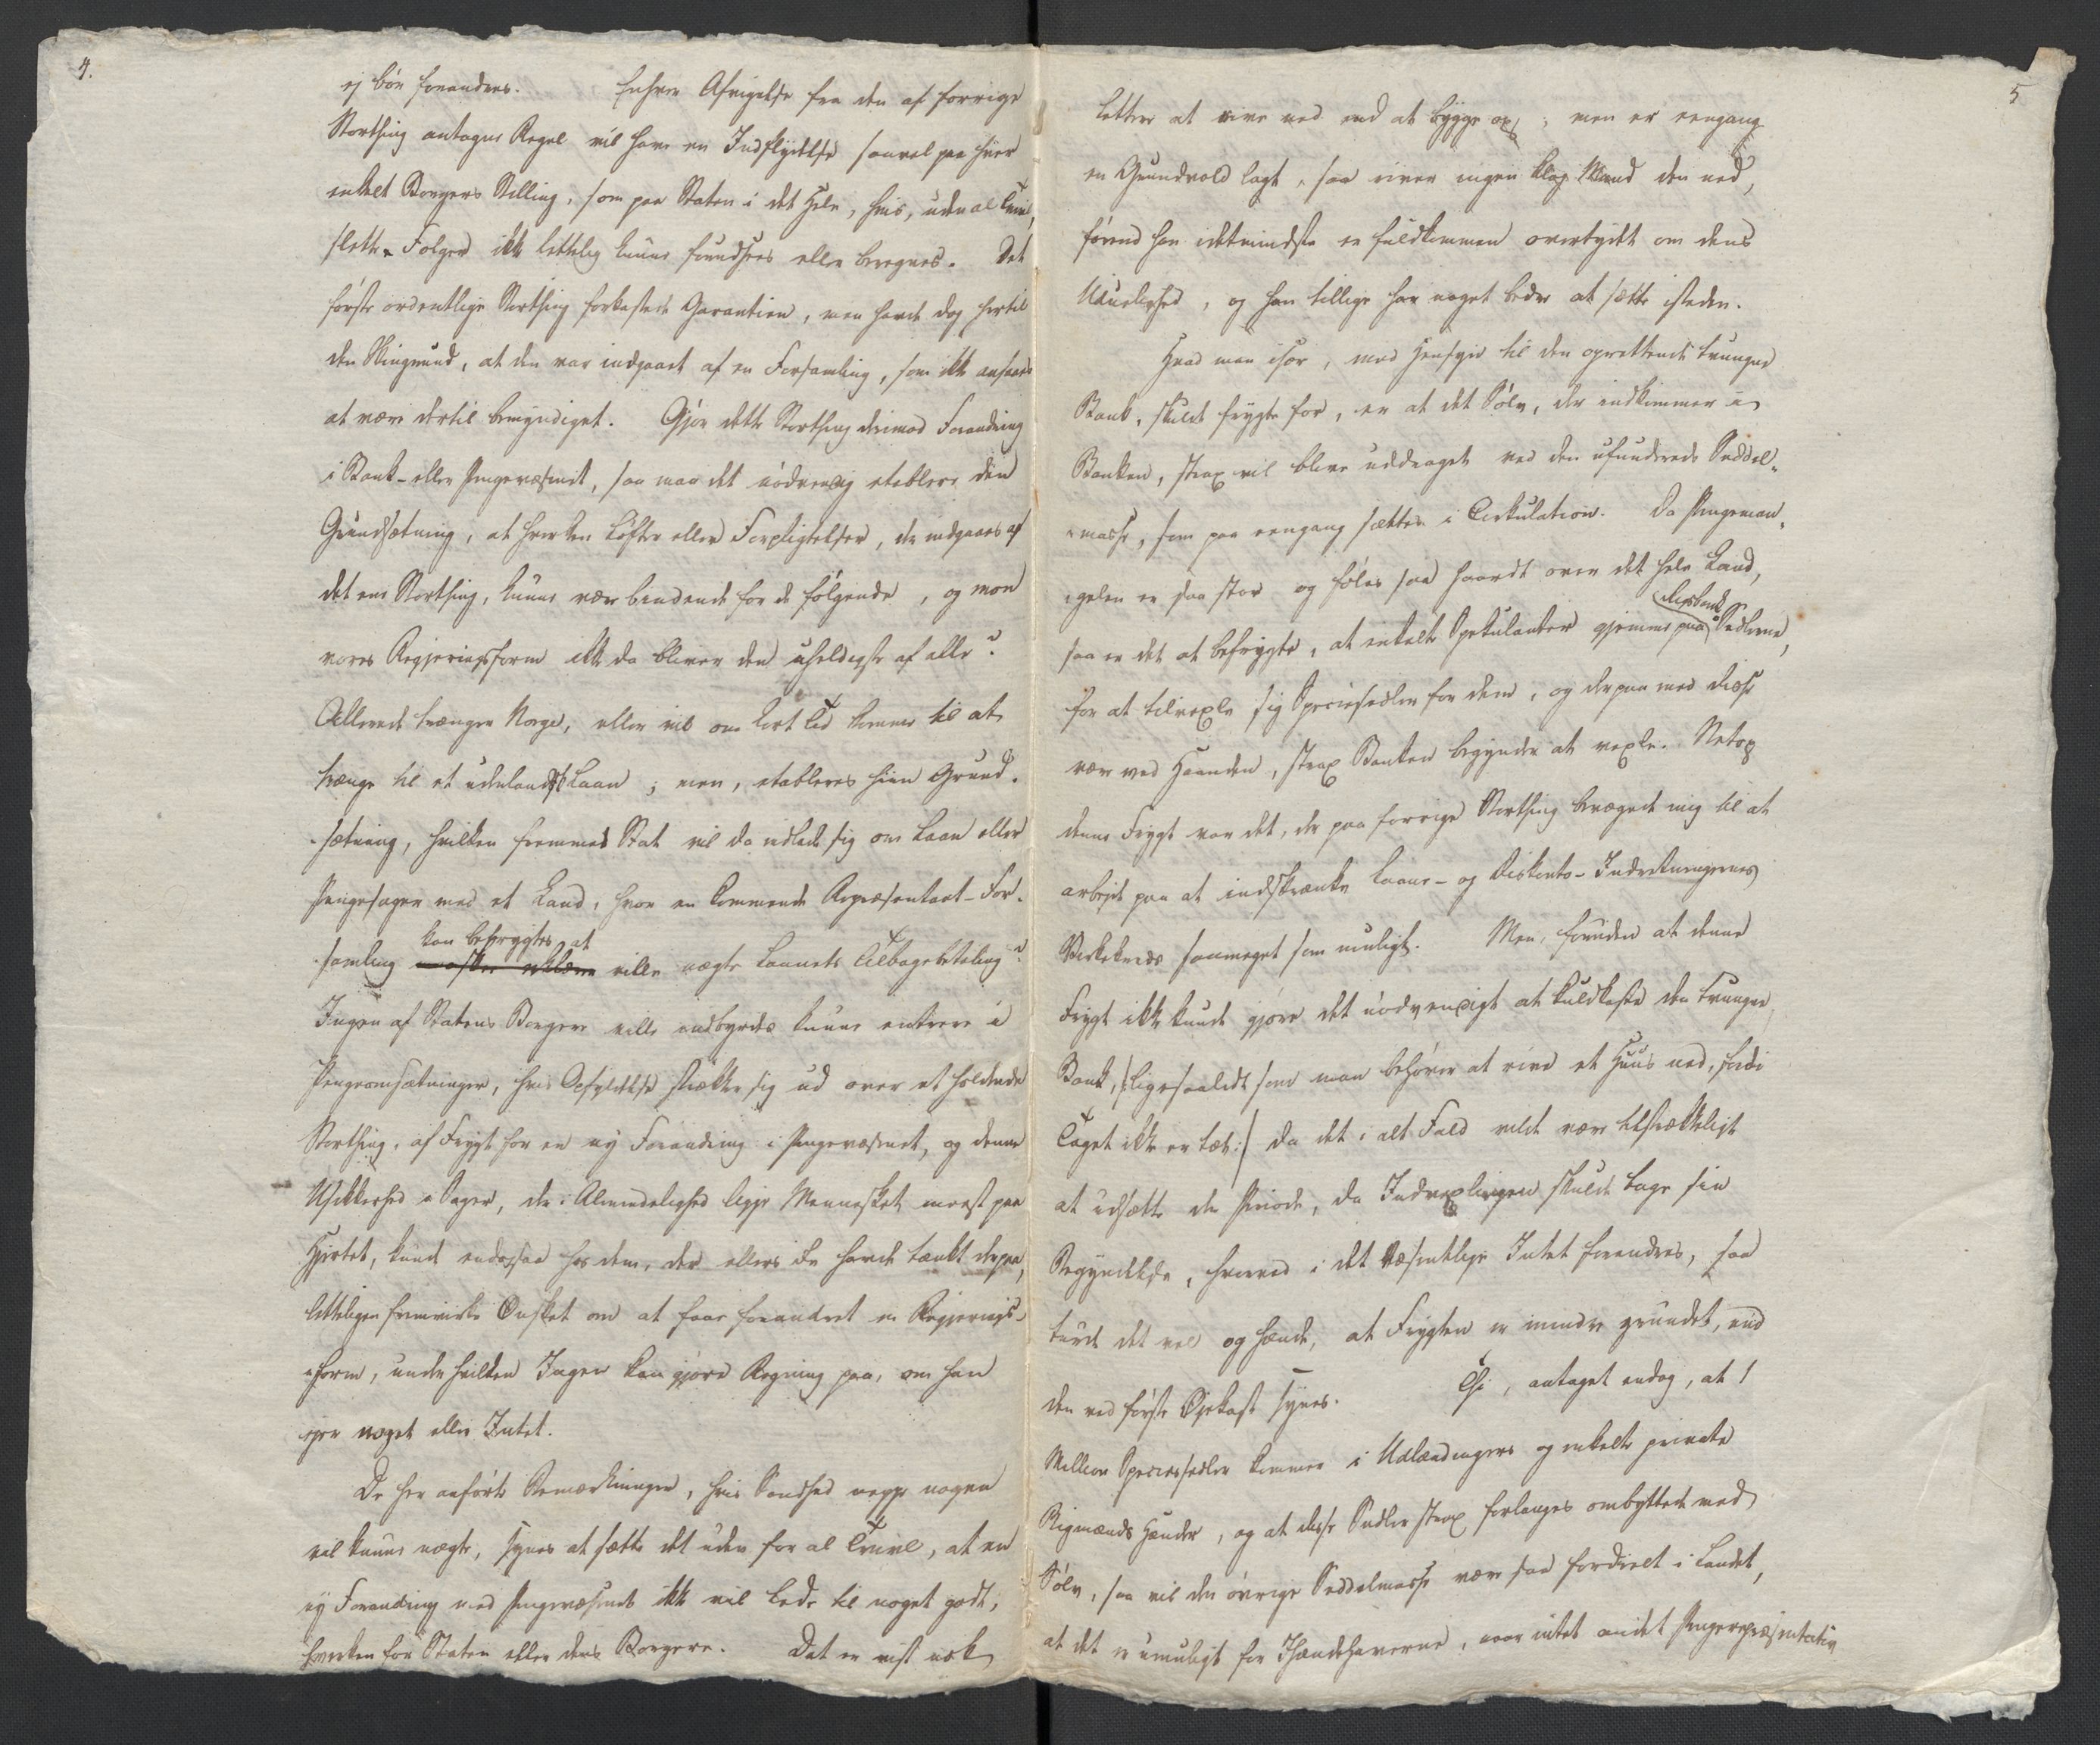 4.
ej bør forandres. Enhver Afvigelse fra den af forrige
Storthing antagne Regel vil have en Indflydelse saavel paa hver
enkelt Borgers Stilling, som paa Staten i det Hele, hvis, uden al Tvivl,
slette Følger ikke lettelig kunne forudsees eller beregnes. Det
første ordentlige Storthing forkastede Garantien, men havde dog hertil
den Skingrund, at den var indgaaet af en Forsamling, som ikke ansaaes
at være dertil bemyndiget. Gjør dette Storthing derimod Forandring
i Bank- eller Pengevæsenet, saa maa det nødvendig etablere den
Grundsætning, at hverken Løfter eller Forpligtelser, der indgaaes af
det ene Storthing, kunne være bindende for de følgende, og mon
vores Regjeringsform ikke da bliver den uheldigste af alle?
Allerede trænger Norge, eller vil om kort Tid komme til at
trænge til et udenlandsk Laan; men, etableres hiin Grund-
-sætning, hvilken fremmed Stat vil da indlade sig om Laan eller
Pengesager med et Land, hvor en kommende Repræsentant-For-
-samling kan befrygtes at ville nægte Laanets Tilbagebetaling?
Ingen af Statens Borgere ville indbyrdes kunne entrere i
Pengeomsætninger, hvis Opfyldelse strække sig ud over et holdende
Storthing, af Frygt for en ny Forandring i Pengevæsenet, og denne
Usikkerhed i Sager, der i Almindelighed ligge Mennesket meest paa
Hjertet, kunde endogsaa hos dem, der ellers ei havde tænkt derpaa,
letteligen fremvirke Ønsket om at faae forandret en Regjerings-
-form, under hvilken Ingen kan gjøre Regning paa, om han
ejer noget eller Intet.
De her anførte Bemærkninger, hvis Sandhed neppe nogen
vil kunne nægte, synes at sætte det uden for al Tvivl, at en
ny Forandring med Pengevæsenet ikke vil lede til noget godt,
hverken for Staten eller dens Borgere. Det er vist nok
5
lettere at rive ned end at bygge op; men er eengang
en Grundvold lagt, saa river ingen klog Mand den ned,
førend han idetmindste er fuldkommen overtydet om dens
Uduelighed, og han tillige har noget bedre at sætte isteden.
Hvad man især, med Hensyn til den oprettende tvungne
Bank, skulde frygte for, er at det Sølv, der indkommer i
Banken, strax vil blive uddraget ved den ufunderede Seddel-
-masse, som paa eengang sættes i Cirkulation. Da Pengeman-
-gelen er saa stor og føles saa haardt over det hele Land,
saa er det at befrygte, at enkelte Spekulanter gjemme paa Rigsbank Sedlerne,
for at tilvexle sig Speciesedler for dem, og derpaa med disse
være ved Haanden, strax Banken begynder at vexle. Netop
denne Frygt var det, der paa forrige Storthing bevægede mig til at
arbejde paa at indskrænke Laane- og Diskonto-Indretningernes
Virkekreds saameget som muligt. Men, foruden at denne
Frygt ikke kunde gjøre det nødvendigt at kuldkaste den tvungne
Bank, /:ligesaalidt som man behøver at rive et Huus ned, fordi
Taget ikke er tæt:/ da det i alt Fald vilde være tilstrækkeligt
at udsætte den Periode, da Indvexlingen skulde tage sin
Begyndelse, hvorved i det Væsentlige Intet forandres, saa
turde det vel og hænde, at Frygten er mindre grundet, end
den ved første Øjekast synes. Thi, antaget endog, at 1
Million Speciessedler kommer i Udlændingers og enkelte private
Rigmænds Hænder, og at disse Sedler strax forlanges ombyttede med
Sølv, saa vil den øvrige Seddelmasse være saa fordeelt i Landet,
at det er umuligt for Ihændehaverne, naar intet andet Pengerepræsentativ